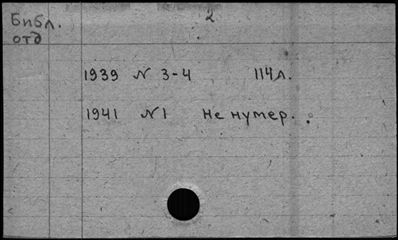 Библ. 2
отд
1939 N 3-4 114л.
1941 N1 не нумер.